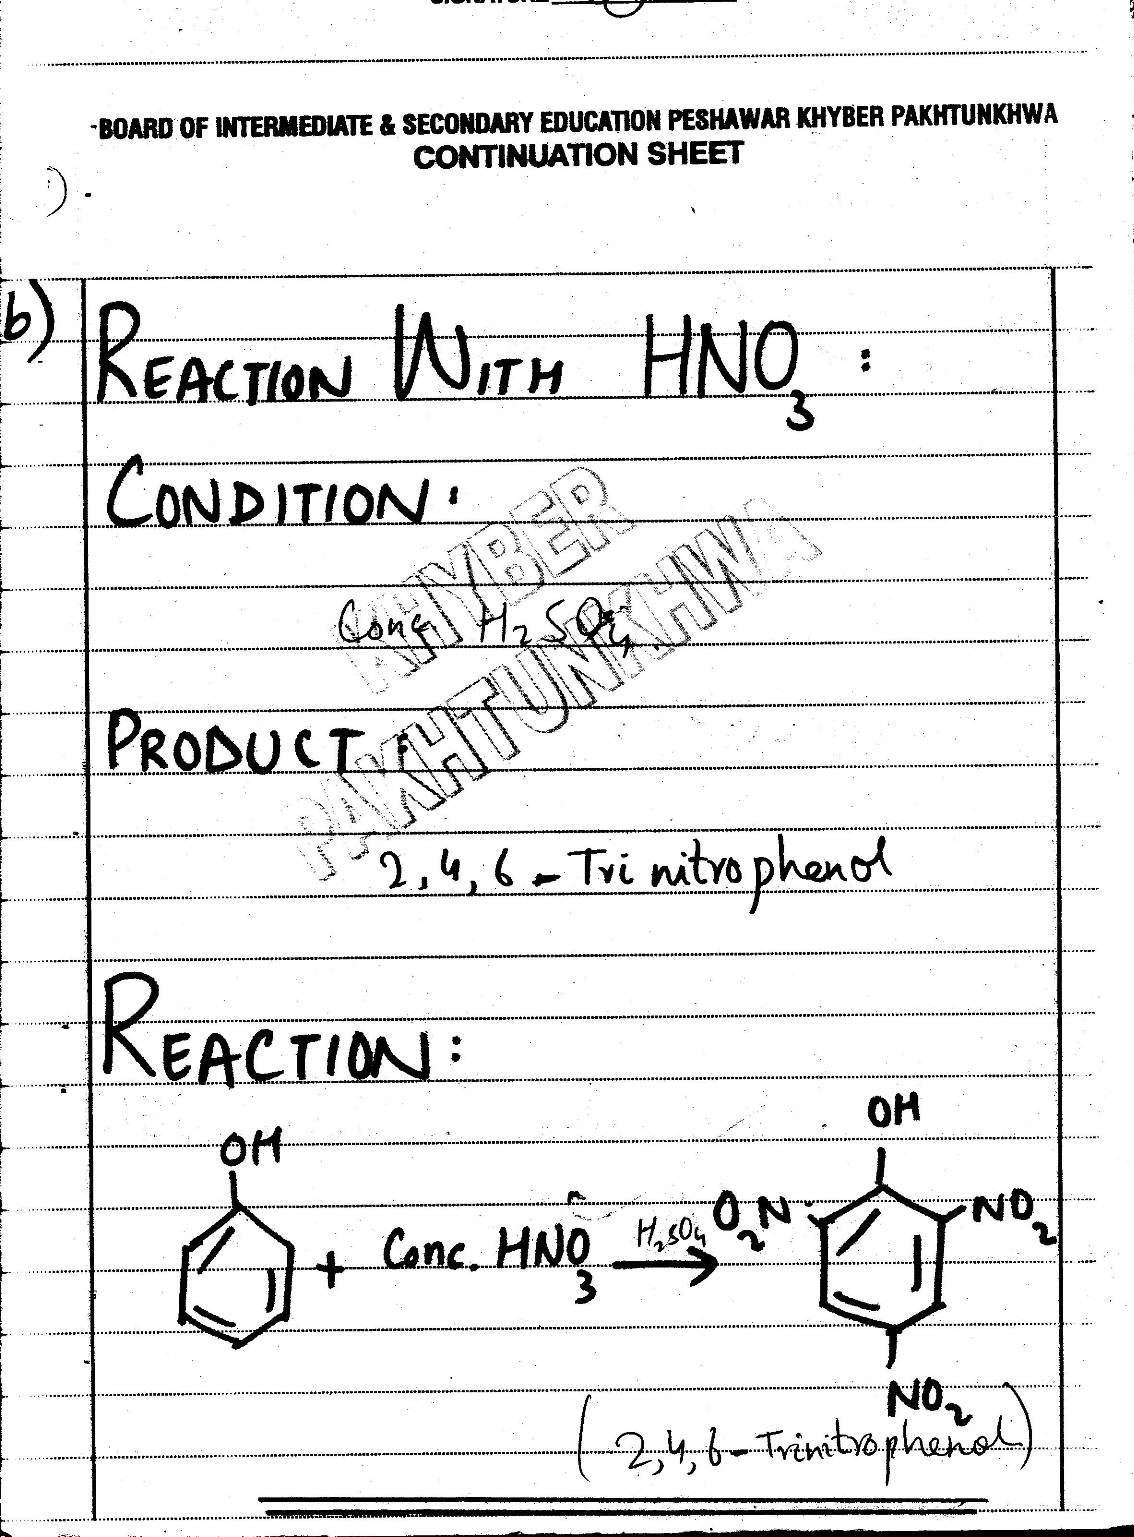 -BOARD OF INTERMEDIATE & SECONDARY EDUCATION PESHAWAR KHYBER PAKHTUNKHWA
CONTINUATION SHEET
b)
REACTION WITH HNO3 :
CONDITION:
Conc H2SO4
KHYBER
PAKHTUNKHWA
PRODUCT:
2,4,6-Tri nitrophenol
REACTION:
OH
OH
+ Conc. HNO3 H2SO4 O2N NO2
NO2
(2,4,6-Trinitrophenol)